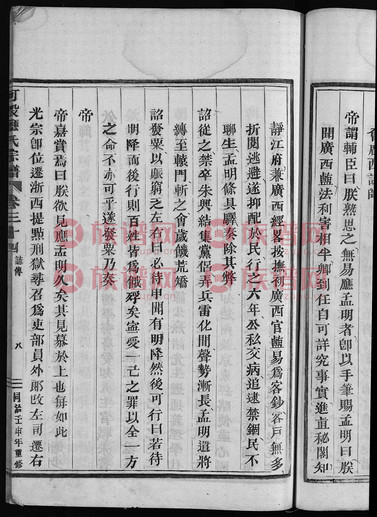 帝謂輔臣曰朕熟思之無易應孟明者卽以手筆賜孟明曰朕
聞廣西鹽法利害相半卿到任自可詳究事實進直秘閣知
靜江府兼廣西經畧按撫初廣西官鹽易爲客鈔客戶無多
折閱逃避遂抑配於民行之六年公私交病追逮禁錮民不
聊生孟明條具驛奏除其弊
詔從之禁卒朱興結集黨侶弄兵雷化間聲勢漸長孟明遣將
縛至轅門斬之會歲饑荒矯
詔發粟以賑窮之左右曰必待申聞有明降然後可行曰若待
明降而後行則百姓皆爲餓殍矣寧受一己之罪以全一方
之命不亦可乎遂發粟乃奏
帝
帝嘉賞焉曰朕欲見應孟明久矣其見慕於上也每如此
光宗卽位遷浙西提點刑獄尋召爲吏部員外郞改左司遷右
應氏宗譜 卷三十四 誌傳 八 同治壬申年重修